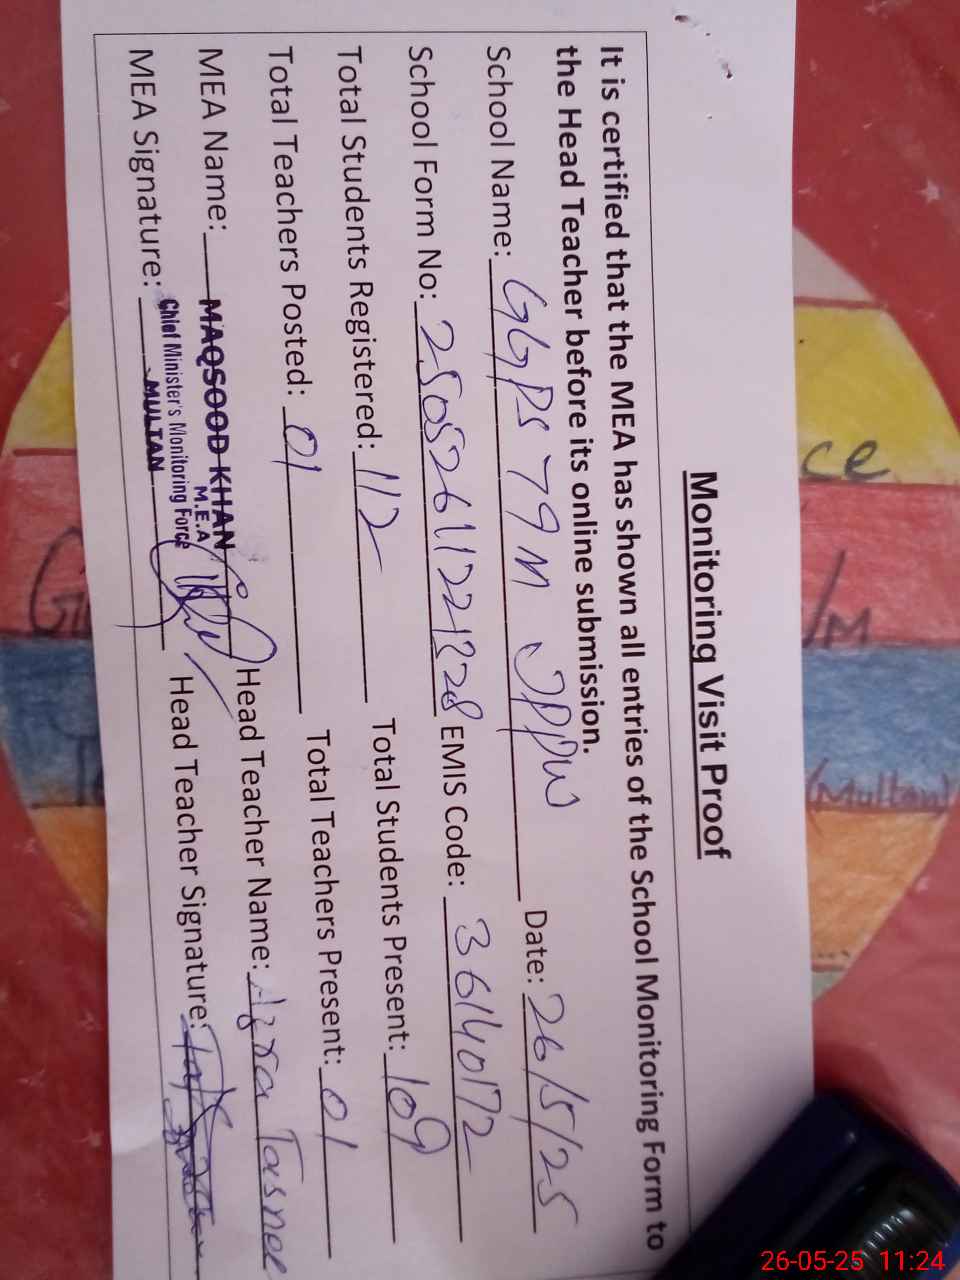 Monitoring Visit Proof
It is certified that the MEA has shown all entries of the School Monitoring Form to
the Head Teacher before its online submission.
School Name: GGPS 79 M Date: 26/5/25
School Form No: EMIS Code: 36140172
Total Students Registered: 112 Total Students Present: 109
Total Teachers Posted: 01 Total Teachers Present: 01
MEA Name: MAQSOOD KHAN Head Teacher Name: Azra Tasnee
M.E.A
Chief Minister's Monitoring Force
MEA Signature: MULTAN Head Teacher Signature:
ce
/M
(Multan)
26-05-25 11:24